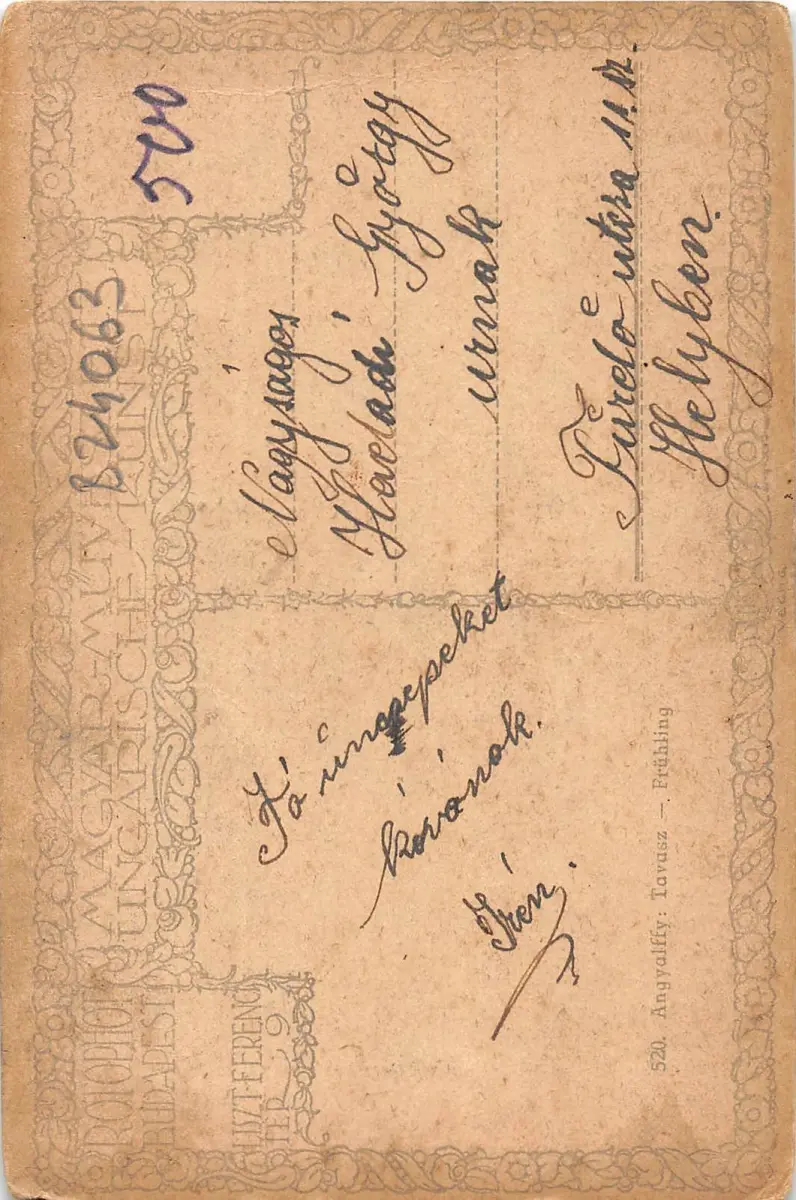 ROTOPHOT
BUDAPEST
MAGYAR-MŰV
UNGARISCHE-KUNST
LISZT-FERENC
TÉR 9
B24063
500
Jó ünnepeket
kívánok.
Irén.
Nagyságos
Haladi György
urnak
Fürdő utcza 11. sz.
Helyben.
520. Angyalffy: Tavasz — Frühling